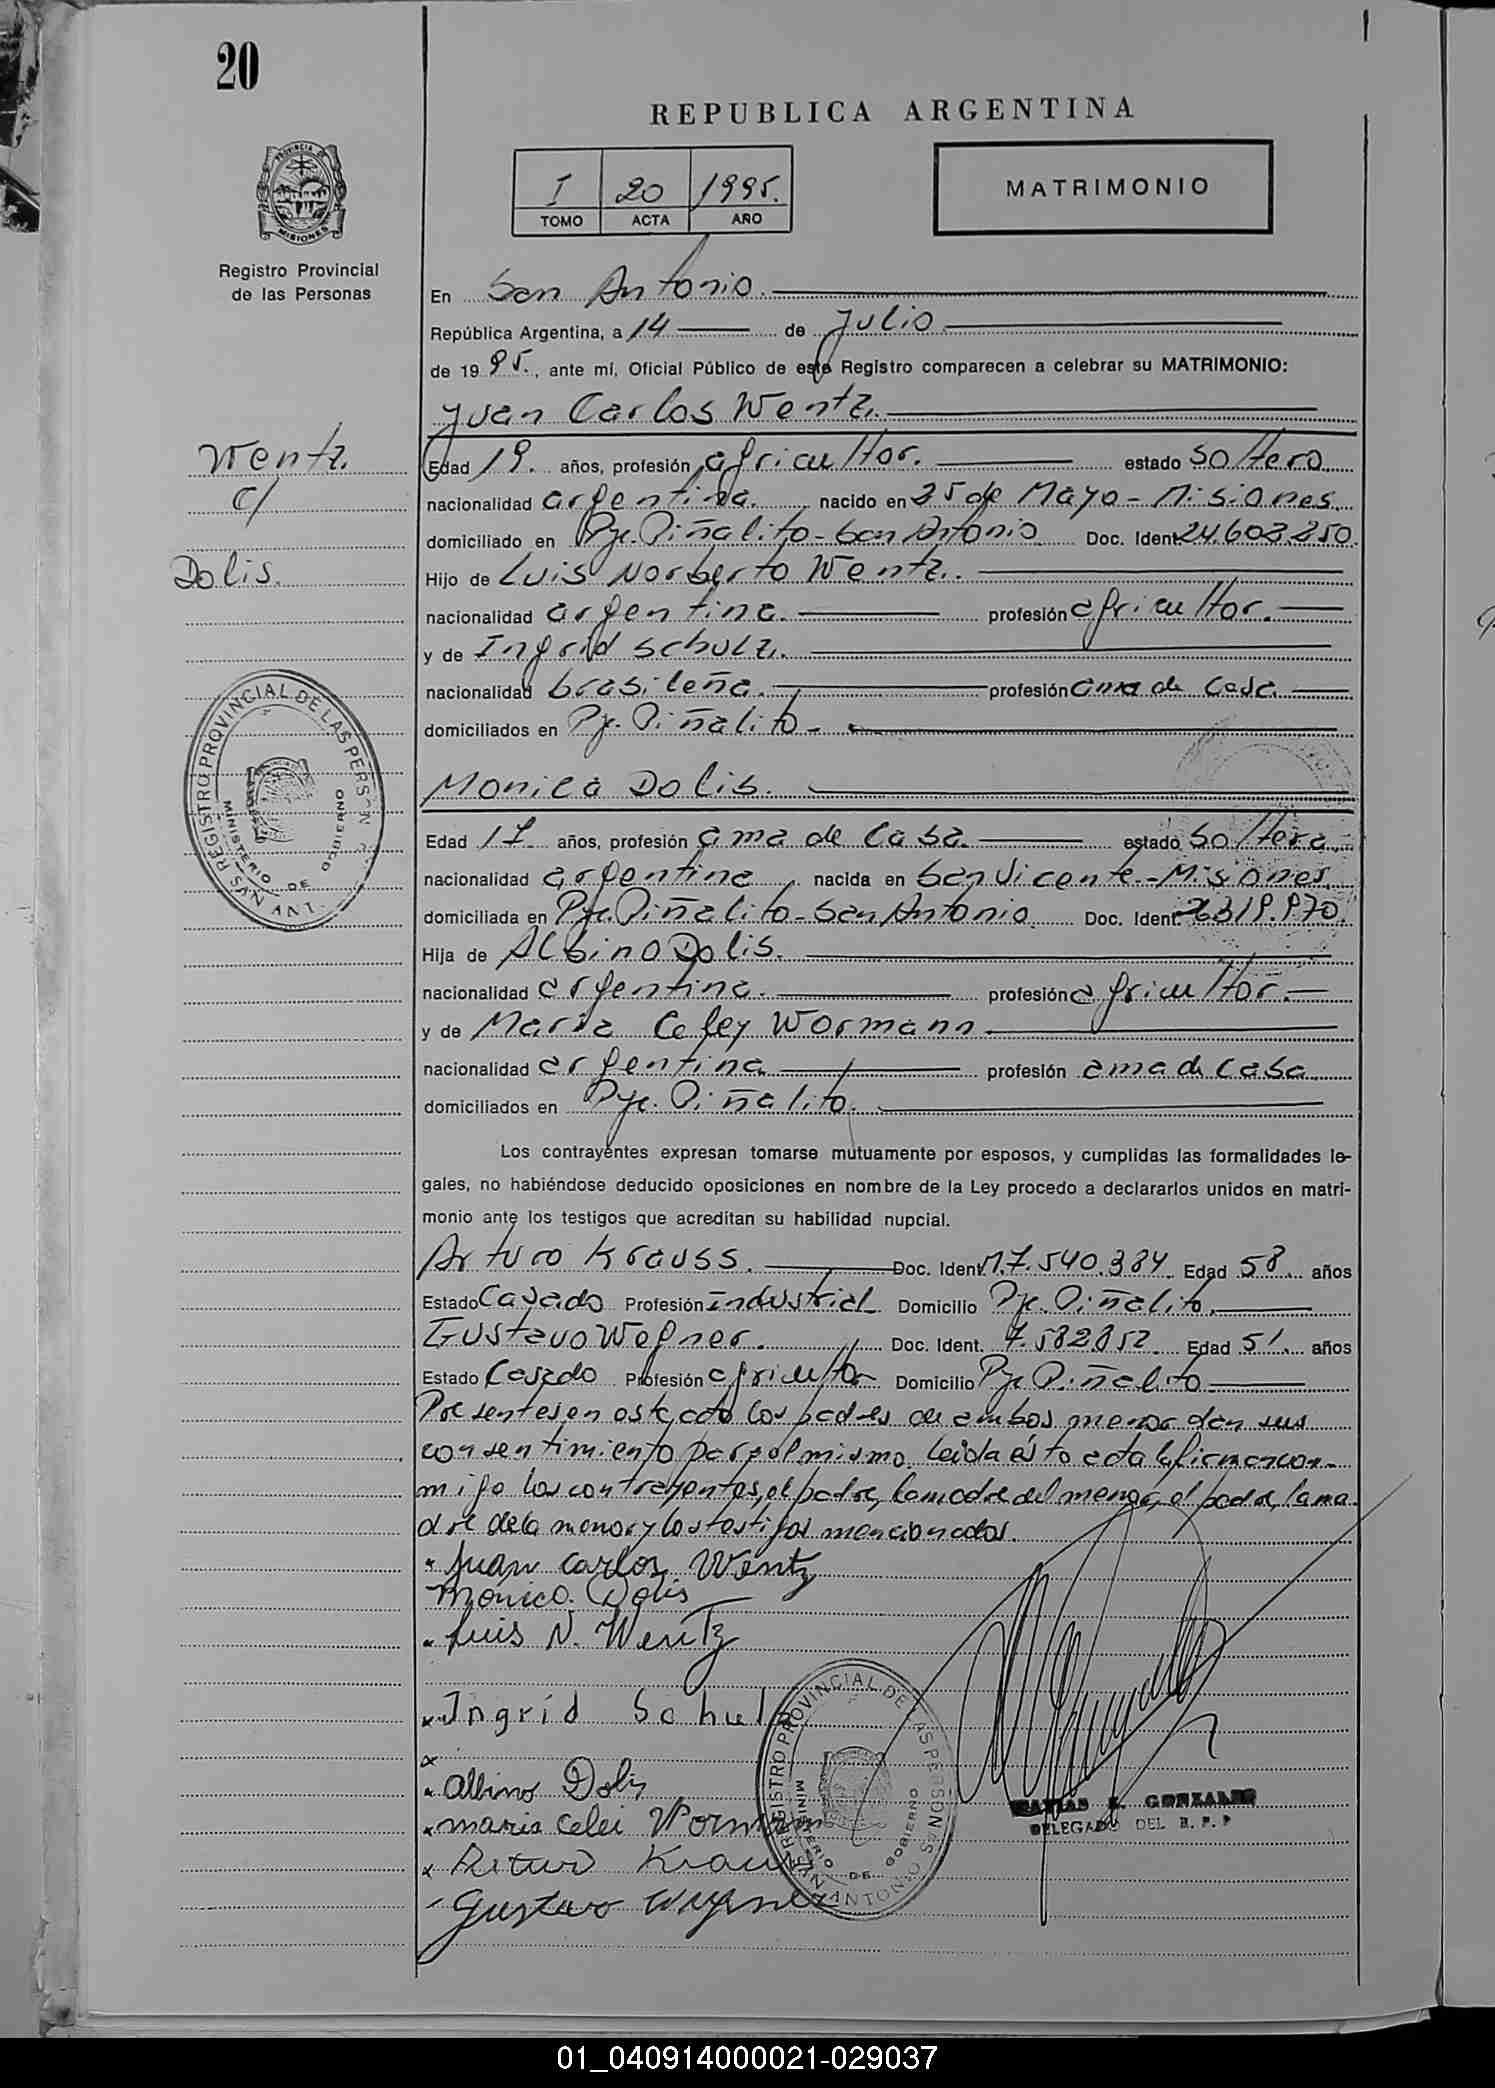 20
REPUBLICA ARGENTINA
I 20 1995.
TOMO ACTA AÑO
MATRIMONIO
PROVINCIA DE
MISIONES
Registro Provincial
de las Personas
En San Antonio.
República Argentina, a 14 de Julio
de 19 95., ante mí, Oficial Público de este Registro comparecen a celebrar su MATRIMONIO:
Juan Carlos Wentz.
Wentz.
c/
Dolis.
Edad 19. años, profesión agricultor. estado soltero
nacionalidad argentina. nacido en 25 de Mayo - Misiones.
domiciliado en Pje. Piñalito - San Antonio Doc. Ident. 24.603.250.
Hijo de Luis Norberto Wentz.
nacionalidad argentina. profesión agricultor.
y de Ingrid Schulz.
nacionalidad brasileña. profesión ama de casa
domiciliados en Pje. Piñalito -
Monica Dolis.
Edad 17. años, profesión ama de casa. estado soltera
nacionalidad argentina nacida en San Vicente - Misiones.
domiciliada en Pje. Piñalito - San Antonio Doc. Ident. 26319.970.
Hija de Albino Dolis.
nacionalidad argentina. profesión agricultor.
y de Maria Celey Wormann
nacionalidad argentina profesión ama de casa
domiciliados en Pje. Piñalito.
Los contrayentes expresan tomarse mutuamente por esposos, y cumplidas las formalidades le-
gales, no habiéndose deducido oposiciones en nombre de la Ley procedo a declararlos unidos en matri-
monio ante los testigos que acreditan su habilidad nupcial.
Arturo Krauss. Doc. Ident. M.7.540.384. Edad 58. años
Estado Casado Profesión industrial Domicilio Pje. Piñalito.
Gustavo Wegner. Doc. Ident. 7.582.852. Edad 51. años
Estado Casado Profesión agricultor Domicilio Pje Piñalito
Presentes en este acto los padres de ambos menor dan sus
consentimiento para el mismo. Leida ésta acta la firman con-
migo los contrayentes, el padre, la madre del menor, el padre, la ma
dre de la menor y los testigos mencionados.
Juan Carlos Wentz
Mónica Dolis
Luis N. Wentz
x Ingrid Schulz
x
Albino Dolis
x maria Celei Wormann
x Artur Kraus
Gustavo Wegner
REGISTRO PROVINCIAL DE LAS PERSONAS
MINISTERIO DE GOBIERNO
SAN ANTONIO
GONZALEZ
DELEGADO DEL R. P. P
01_040914000021-029037